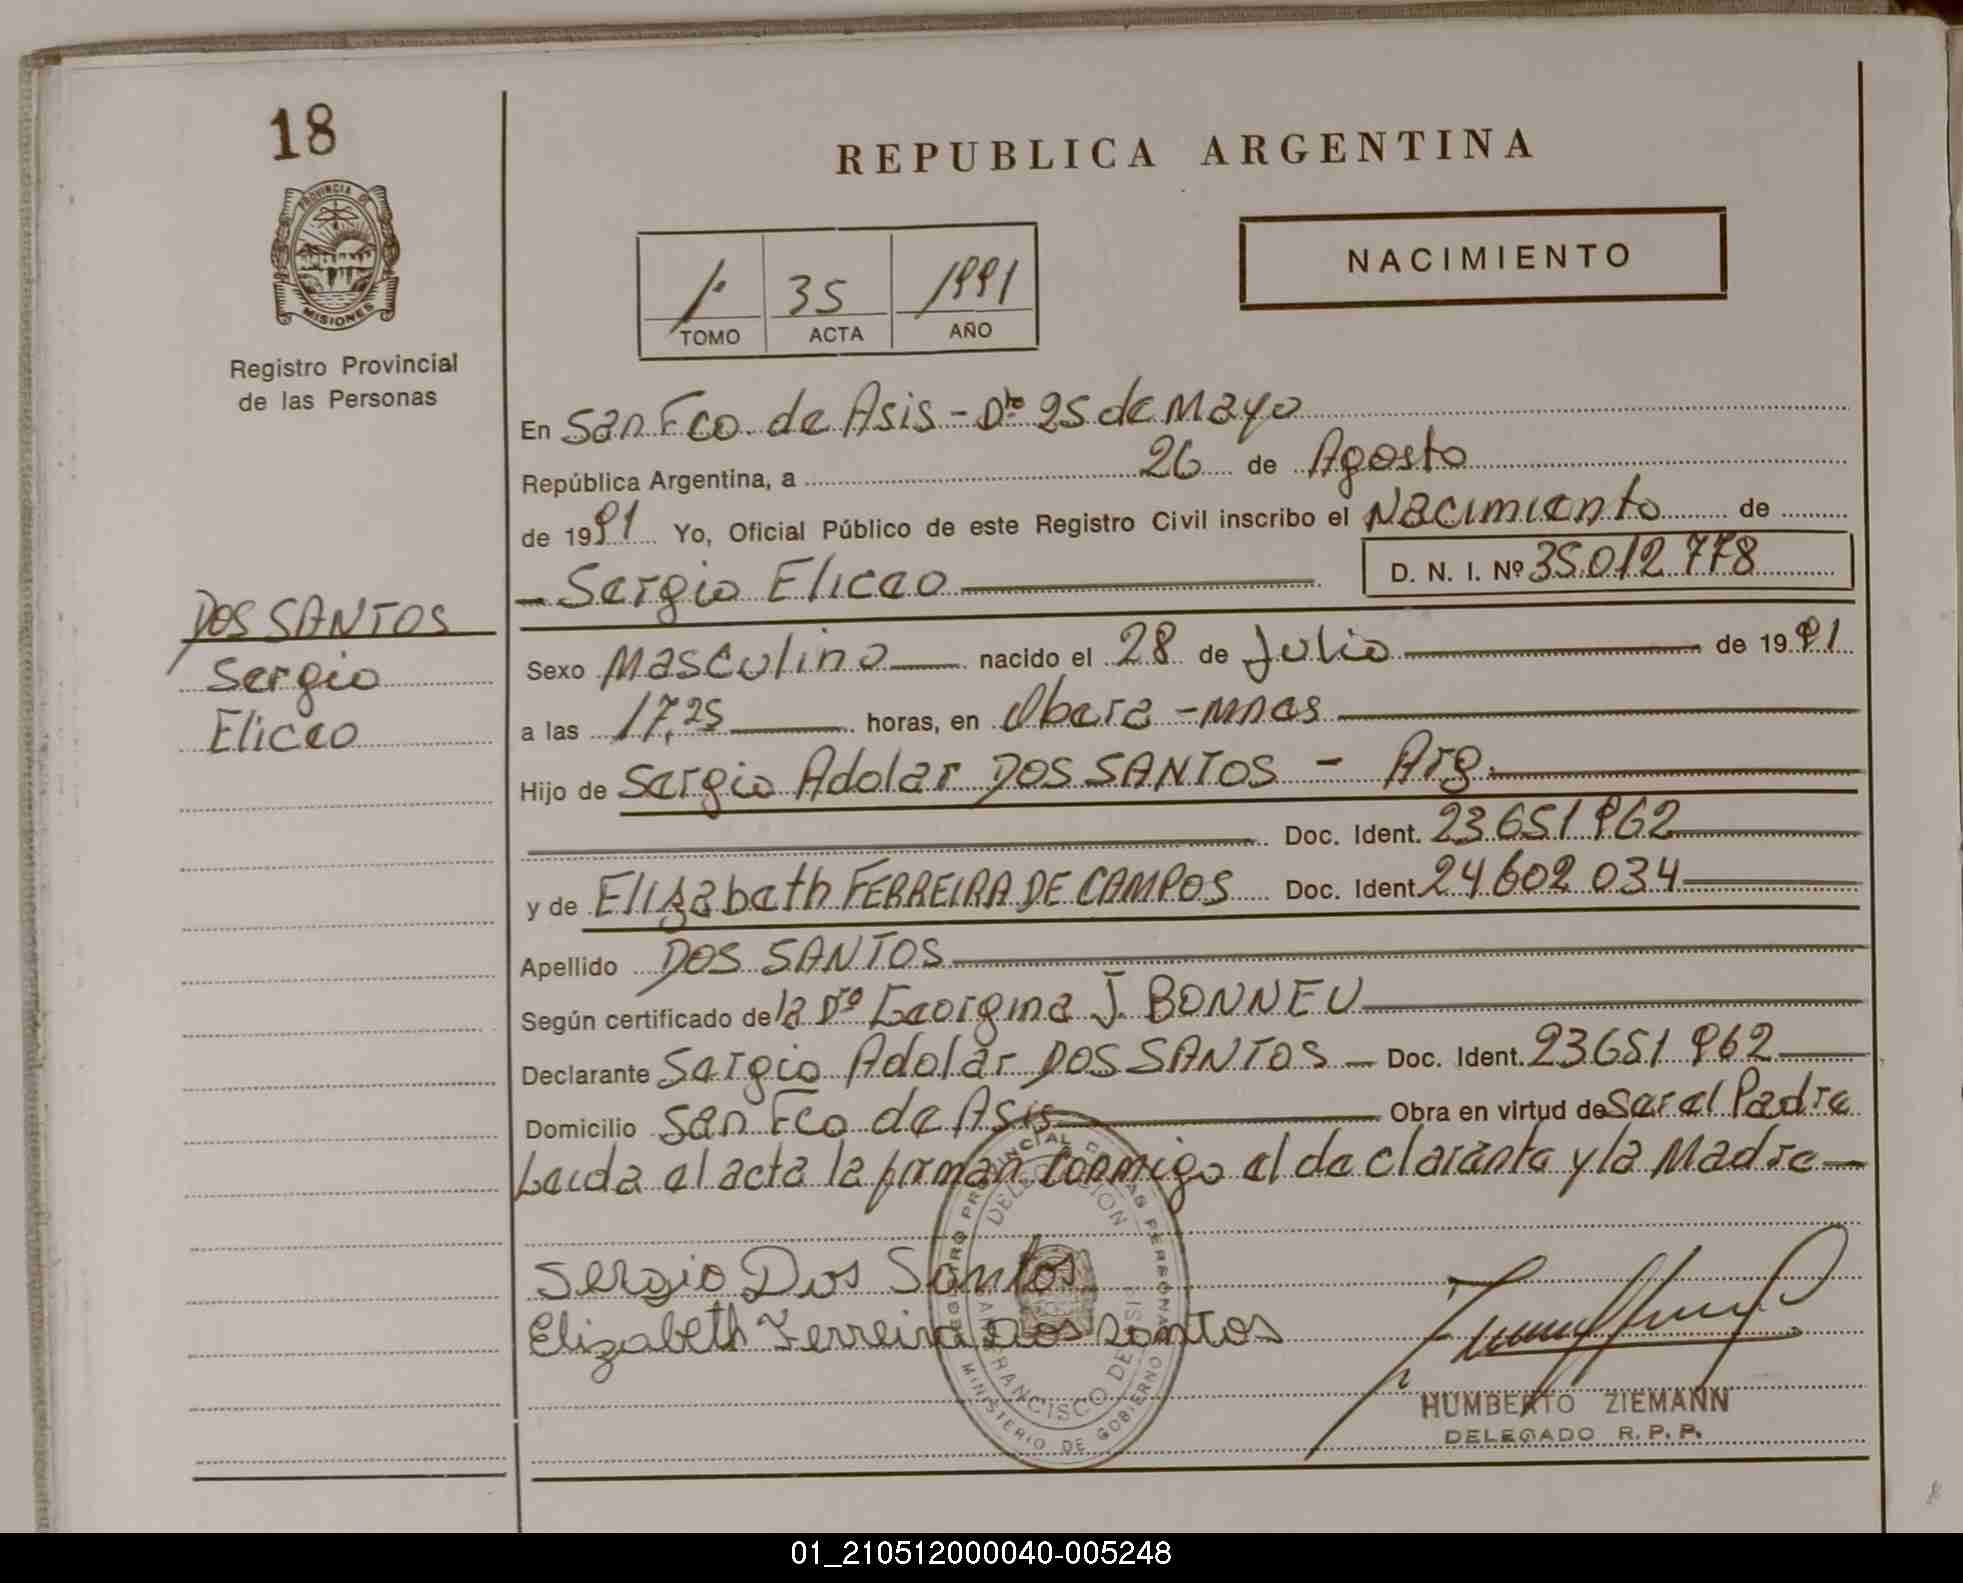 18
PROVINCIA DE
MISIONES
Registro Provincial
de las Personas
DOS SANTOS
Sergio
Eliceo
REPUBLICA ARGENTINA
1º 35 1991
TOMO ACTA AÑO
NACIMIENTO
En San Fco. de Asis - Dto 25 de Mayo
República Argentina, a 26 de Agosto
de 1991 Yo, Oficial Público de este Registro Civil inscribo el Nacimiento de
- Sergio Eliceo
D. N. I. Nº 35.012.778
Sexo Masculino nacido el 28 de Julio de 1991
a las 17,25 horas, en Obera - Mnes
Hijo de Sergio Adolar DOS SANTOS - Arg.
Doc. Ident. 23.651.962
y de Elizabeth FERREIRA DE CAMPOS Doc. Ident. 24.602.034
Apellido DOS SANTOS
Según certificado de la Dra Georgina J. BONNEU
Declarante Sergio Adolar DOS SANTOS - Doc. Ident. 23.651.962
Domicilio San Fco de Asis Obra en virtud de Ser el Padre
Leida el acta la firman conmigo el declarante y la Madre
Sergio Dos Santos
Elizabeth Ferreira Dos Santos
REGISTRO PROVINCIAL DE LAS PERSONAS
DELEGACION
SAN FRANCISCO DE ASIS
MINISTERIO DE GOBIERNO
HUMBERTO ZIEMANN
DELEGADO R. P. P.
01_210512000040-005248